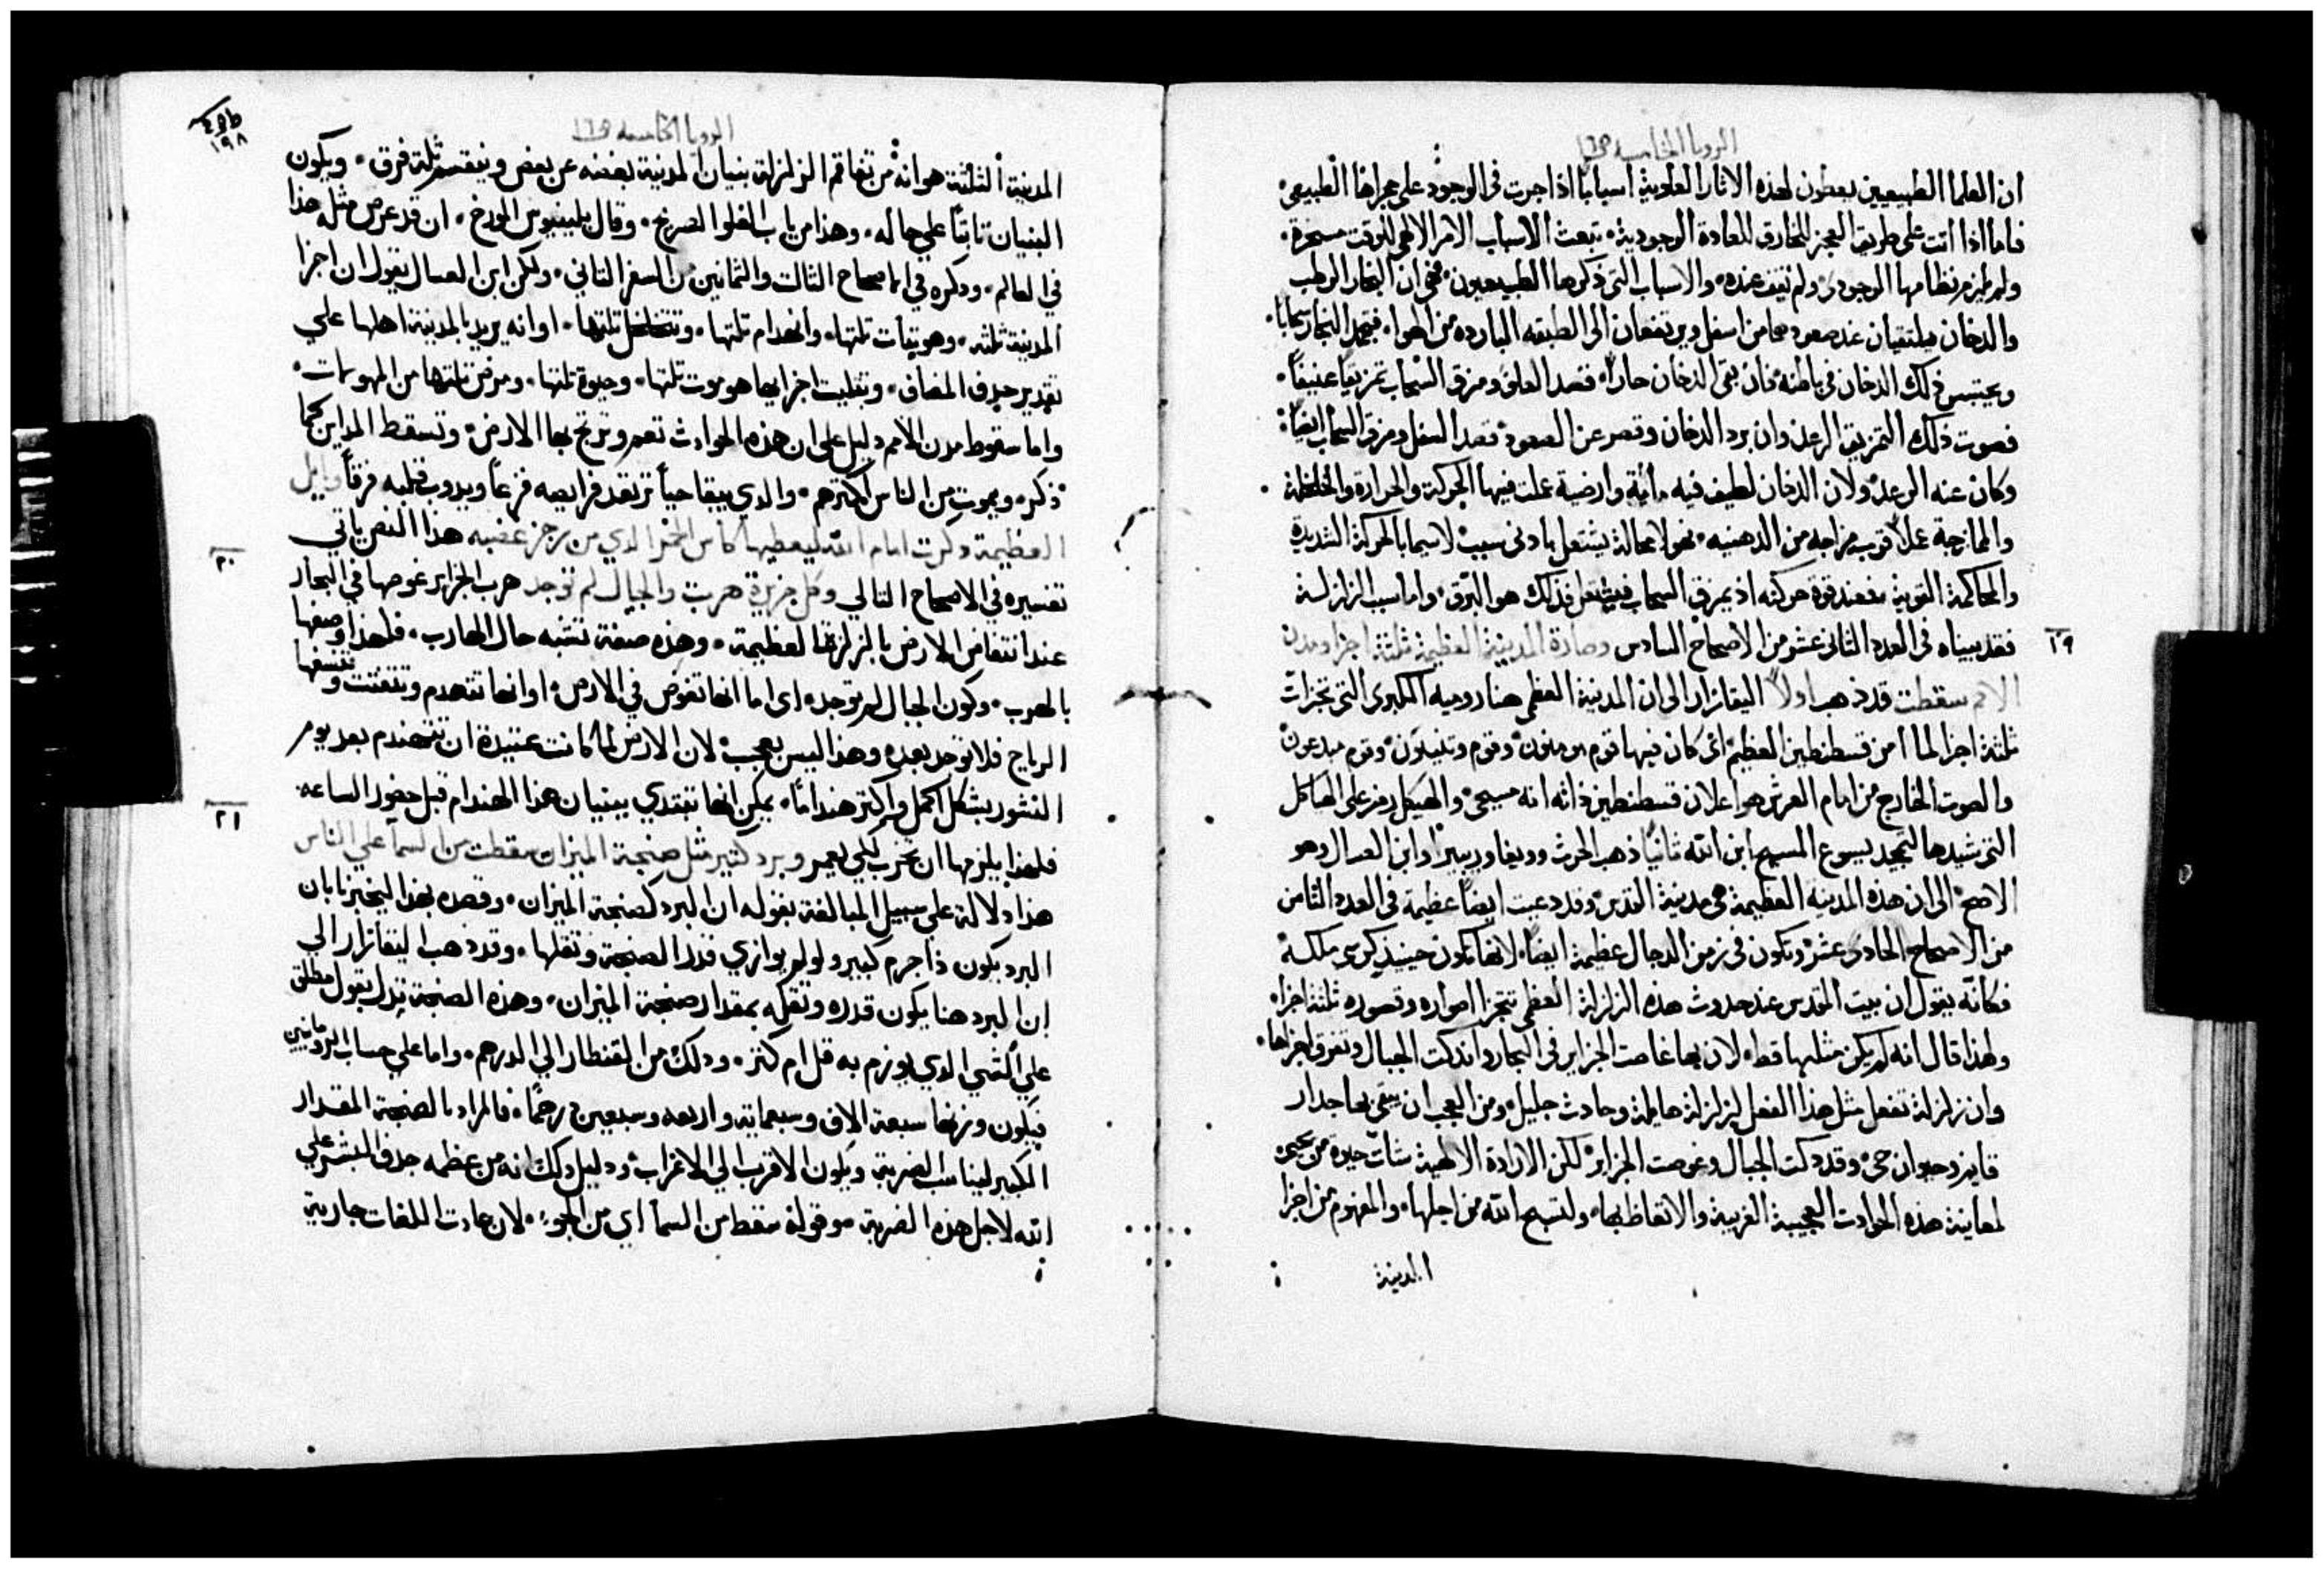 الرويا الخامسه
ان العلما الطبيعيين يعطون لهذه الاثار العلوية اسبابًا اذا جرت في الوجود على مجراها الطبيعي
فاما اذا اتت على طريق المعجز الخارق للعادة الوجودية، تبعث الاسباب الامر الالهي للوقت مسخرة
ولم يلزم نظامها الوجودي ولم تقف عنده والاسباب التي ذكرها الطبيعيون فهي ان البخار الرطب
والدخان يلتقيان عند صعودهما من اسفل ويرتفعان الى الطبقه البارده من الهوا، فينجمد البخار سحابًا
ويحتبس ذلك الدخان في باطنه فان بقى الدخان حارًا قصد العلو ومزق السحاب تمزيقًا عنيفًا
فصوت ذلك التمزيق الرعد وان برد الدخان وقصر عن الصعود قصد السفل ومزق السحاب ايضًا
وكان عنه الرعد ولان الدخان لطيف فيه مائية وارضية عملت فيها الحركة والحرارة والخلخلة
والممازجة عملا قرب مزاجه من الدهنيه فهو لا محالة يشتعل بادنى سبب لاسيما بالحركة الشديدة
والمحاكمة القوية فعند قوة حركته اذ يمزق السحاب فيشتعل فذلك هو البرق واما سبب الزلزلة
٢٩ فقد بيناه في العدد الثاني عشر من الاصحاح السادس وصارة المدينة العظيمة ثلثة اجزا ومدن
الامم سقطت قد ذهب اولاً اليقازار الى ان المدينة العظمى هنا روميه الكبرى التي تجزات
ثلثة اجزا لما امن قسطنطين العظيم اى كان فيها قوم مومنون وقوم وثنيون وقوم مبدعون
والصوت الخارج من امام العرش هو اعلان قسطنطين ذاته انه مسيحي والهيكل رمز على الهياكل
التي شيدها لتمجيد يسوع المسيح ابن الله ثانيًا ذهب الحرث وابن العسال وهو
الاصح الى ان هذه المدينه العظيمة هي مدينة القدس وقد دعيت ايضًا عظيمة في العدد الثامن
من الاصحاح الحادى عشر وتكون في زمن الدجال عظيمة ايضًا لانها تكون حينيذ كرسي ملكه
فكانّه يقول ان بيت المقدس عند حدوث هذه الزلزلة العظمى تتجزا اسواره وقصوره ثلثة اجزاء
ولهذا قال انه لم يكن مثلها قط لان بها غاصت الجزاير في البحار واندكت الجبال وتفرق اجزاها
وان زلزلة تفعل مثل هذا الفعل لزلزلة هايلة وحادث جليل ومن العجب ان يبقى بها جدار
قايم وحيوان حي وقد دكت الجبال وغوصت الجزاير لكن الارادة الالهية شات حيوة من يحيى
لمعاينة هذه الحوادث العجيبة الغريبة والاتعاظ بها ولتسبيح الله من اجلها والمفهوم من اجزا
المدينة
١٩٨
الرويا الخامسه
المدينة الثلثة هو انه من تفاقم الزلزلة بنيان المدينة بعضه عن بعض وينقسم ثلثة فرق ويكون
البنيان ثابتًا على حاله وهذا من باب الغلوا الصريح وقال بلينيوس المورخ ان قد عرض مثل هذا
في العالم وذكره في الاصحاح الثالث والثمانين من السفر الثاني ولكن ابن العسال يقول ان اجزا
المدينة ثلثه وهو بيقات ثلثها وانهدام ثلثها وتخلخل ثلثها او انه يريد بالمدينة اهلها على
تقدير حدف المضاف وتثليث اجزايها هو موت ثلثها وحيوة ثلثها ومرض ثلثها من المهولات
واما سقوط مدن الامم دليل على ان هذه الحوادث تعم وترتج بها الارض وتسقط المداين كما
ذكر ويموت من الناس اكثرهم والدي يبقا حيًا ترتعد فرايصه فزعًا ويدوب قلبه فرقًا وبابل
العظيمة ذكرت امام الله ليعطيها كاس الخمر الدي من رجز غضبه هذا النص ياتي
٢٠ تفسيره في الاصحاح التالي وكل جزيرة هربت والجبال لم توجد هرب الجزاير غوصها في البحار
عند انتفاض الارض بالزلزلة العظيمة وهذه صفة تشبه حال الهارب فلهذا وصفها
بالهرب وكون الجبال لم توجد اى اما انها تغوص في الارض او انها تنهدم وتتفتت وتنسفها
الرياح فلا توجد بعده وهذا ليس بعجب لان الارض لما كانت عتيدة ان تتهندم بعد يوم
النشور بشكل اكمل واكثر هندامًا يمكن انها تبتدي ببنيان هذا الهندام قبل حضور الساعه
٢١ فلهذا يلزمها ان تخرب لكي تعمر وبرد كثير مثل صنجة الميزان سقطت من السما على الناس
هذا دلالة على سبيل المبالغة بقوله ان البرد كصنجة الميزان وقصده بهذا ليخبرنا بان
البرد يكون ذا جرم كبير ولو لم يوازي قدر الصنجة وثقلها وقد ذهب اليقازار الى
ان البرد هنا يكون قدره وثقله بمقدار صنجة الميزان وهذه الصنجة تدل بقول مطلق
على الشي الدي يوزن به قل ام كثر ودلك من القنطار الى الدرهم واما على حساب الرومانيين
فيكون وزنها سبعة الاف وسبعماية واربعه وسبعين درهمًا فالمراد بالصنجة المقدار
الكبير ليناسب الضربة ويكون الاقرب الى الاغراب ودليل ذلك انه من عظمه جدف البشر على
الله لاجل هذه الضربة وقوله سقط من السما اي من الجو لان عادت اللغات جارية